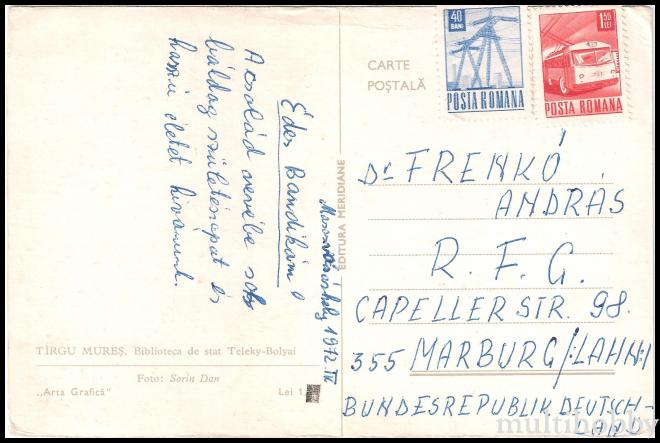 Marosvásárhely 1972. IV
Édes Bandikám!
A család nevébe sok
boldog születésnapot és
hosszú életet kívánunk.
TÎRGU MUREȘ. Biblioteca de stat Teleky-Bolyai
Foto: Sorin Dan
„Arta Grafică”
Lei 1,
EDITURA MERIDIANE
CARTE
POȘTALĂ
40
BANI
POSTA ROMANA
1.50
LEI
POSTA ROMANA
Dr FRENKÓ
ANDRÁS
R. F. G.
CAPELLER STR. 98.
355 MARBURG/:LAHN:/
BUNDESREPUBLIK DEUTSCH-
LAND
multihobby